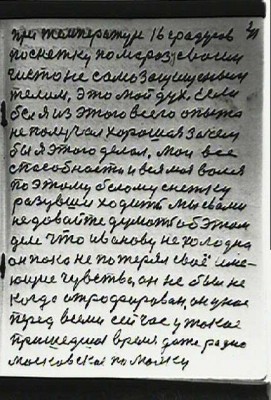 при температуре 16 градусов
по снежку по морозу своим
чисто не самозащищенным
телом, это мой дух. Если
бы я из этого всего опыта
не получал хорошая зачем
бы я этого делал. Мои все
способности и вся моя воля
по этому белому снежку
разувши ходить. Мы с вами
не давайте думать об этом
деле что Иванову не холодна
он пока не потерял своё име-
ющие чувства, он не был не
когда атрофирован, он у нас
перед всеми сейчас у такое
пришедшая время даже радио
Московская по маяку